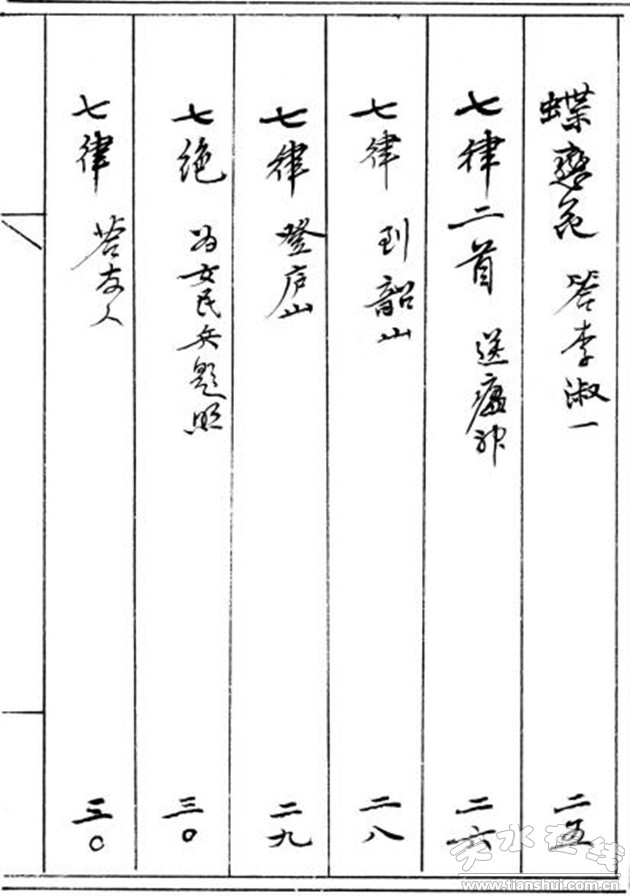 蝶恋花 答李淑一 二五
七律二首 送瘟神 二六
七律 到韶山 二八
七律 登庐山 二九
七绝 为女民兵题照 三〇
七律 答友人 三〇
天水在线
www.tianshui.com.cn